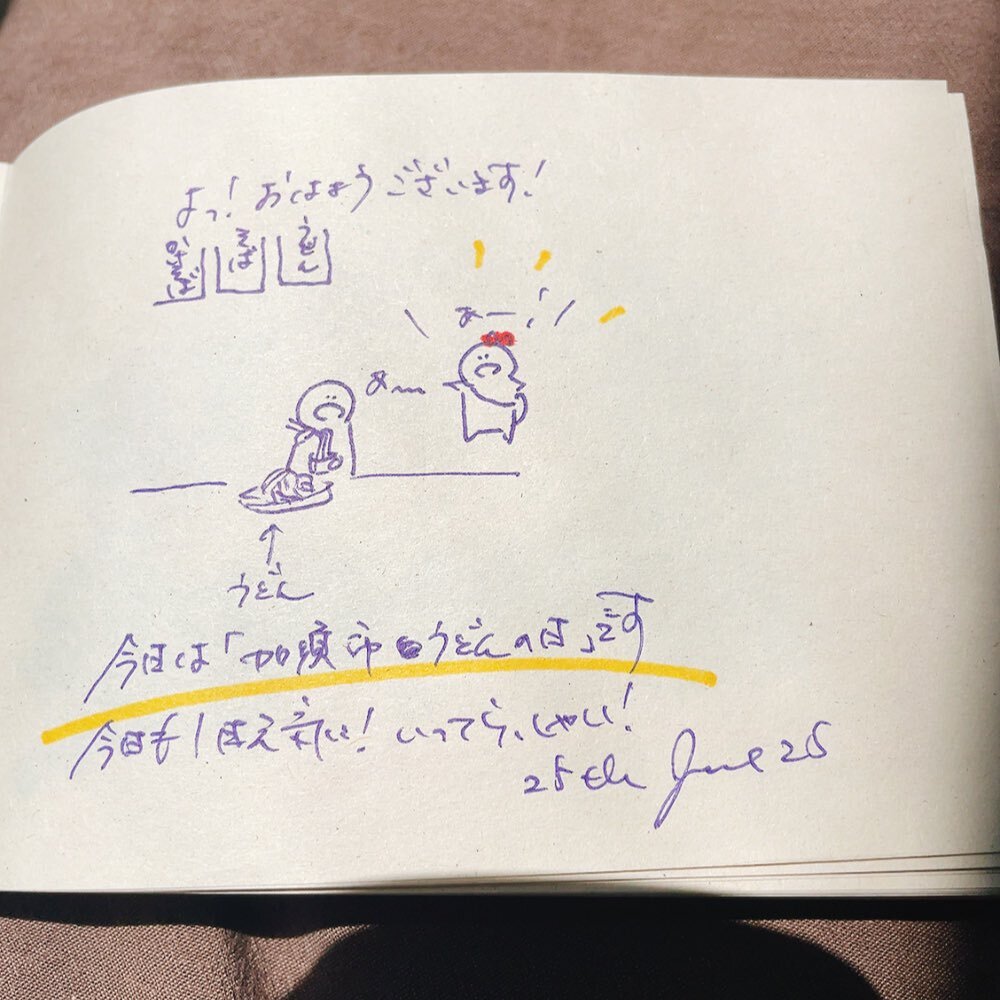 よっ！おはようございます！
やきそば そば うどん
あー！
あー
うどん
今日は「加須市うどんの日」です
今日も1日ええ笑い！いってらっしゃい！
25th June 25